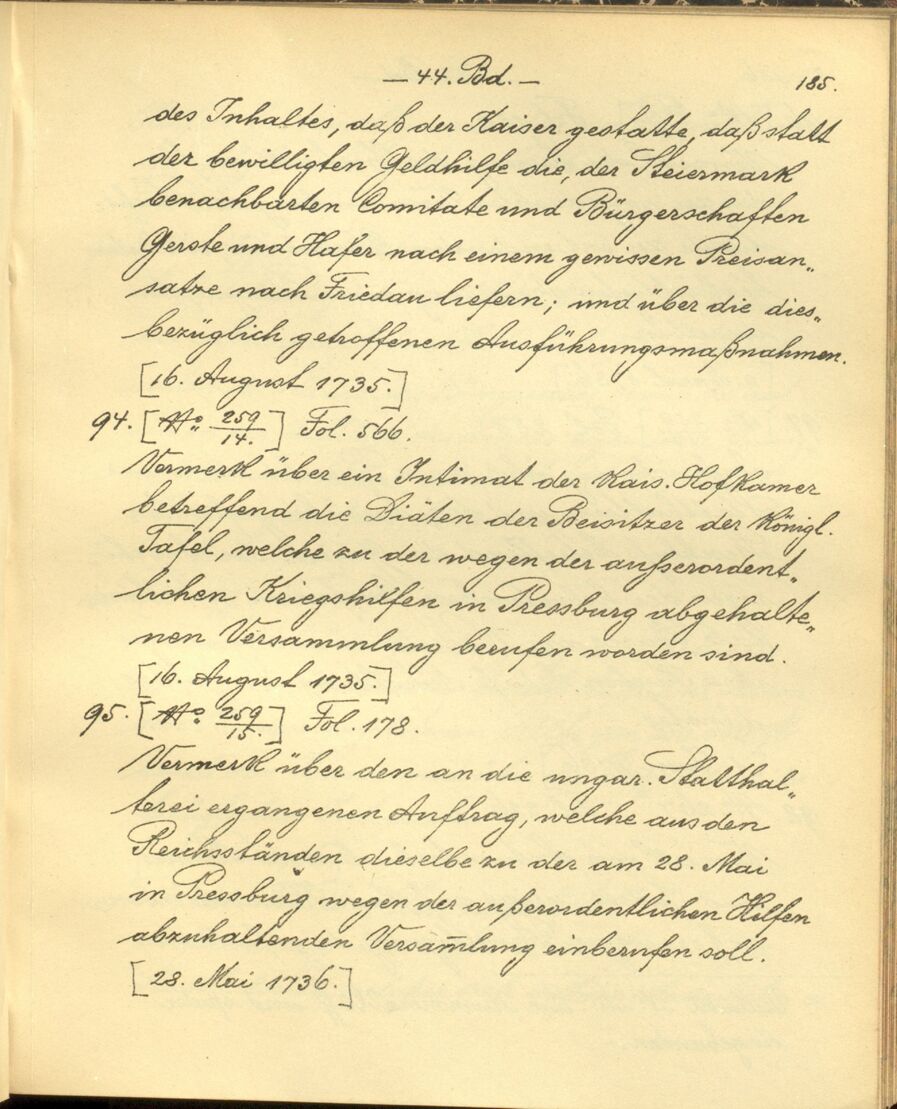 — 44. Bd. — 185.
des Inhaltes, daß der Kaiser gestatte, daß statt
der bewilligten Geldhilfe die, der Steiermark
benachbarten Comitate und Bürgerschaften
Gerste und Hafer nach einem gewissen Preisan„
satze nach Friedau liefern; und über die dies„
bezüglich getroffenen Ausführungsmaßnahmen.
[16. August 1735.]
94. [No. 259/14.] Fol. 566.
Vermerk über ein Intimat der Kais. Hofkamer
betreffend die Diäten der Beisitzer der Königl.
Tafel, welche zu der wegen der außerordent„
lichen Kriegshilfen in Pressburg abgehalte„
nen Versammlung berufen worden sind.
[16. August 1735.]
95. [No. 259/15.] Fol. 178.
Vermerk über den an die ungar. Statthal„
terei ergangenen Auftrag, welche aus den
Reichsständen dieselbe zu der am 28. Mai
in Pressburg wegen der außerordentlichen Hilfen
abzuhaltenden Versam̅lung einberufen soll.
[28. Mai 1736.]